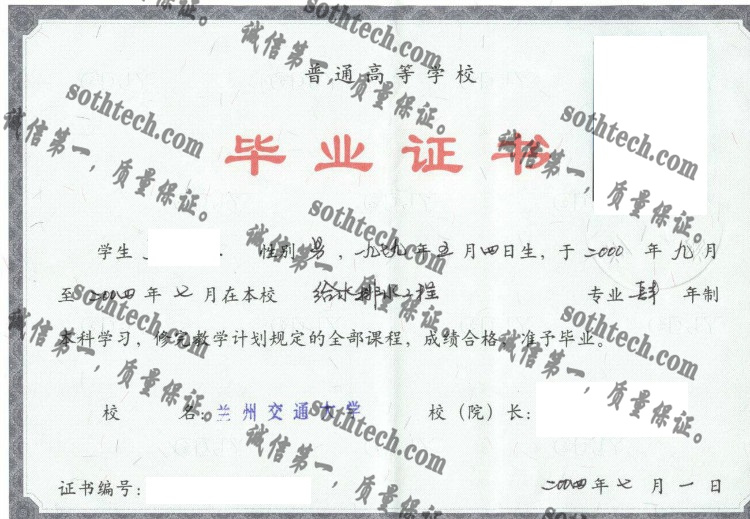 普通高等学校
毕业证书
学生 性别 男，一九七九年五月四日生，于二000年九月
至二00四年七月在本校 给水排水工程 专业肆年制
本科学习，修完教学计划规定的全部课程，成绩合格，准予毕业。
校 名：兰州交通大学 校（院）长：
证书编号： 二00四年七月一日
sothtech.com
诚信第一，质量保证。
sothtech.com
诚信第一，质量保证。
sothtech.com
诚信第一，质量保证。
sothtech.com
诚信第一，质量保证。
sothtech.com
诚信第一，质量保证。
sothtech.com
诚信第一，质量保证。
sothtech.com
诚信第一，质量保证。